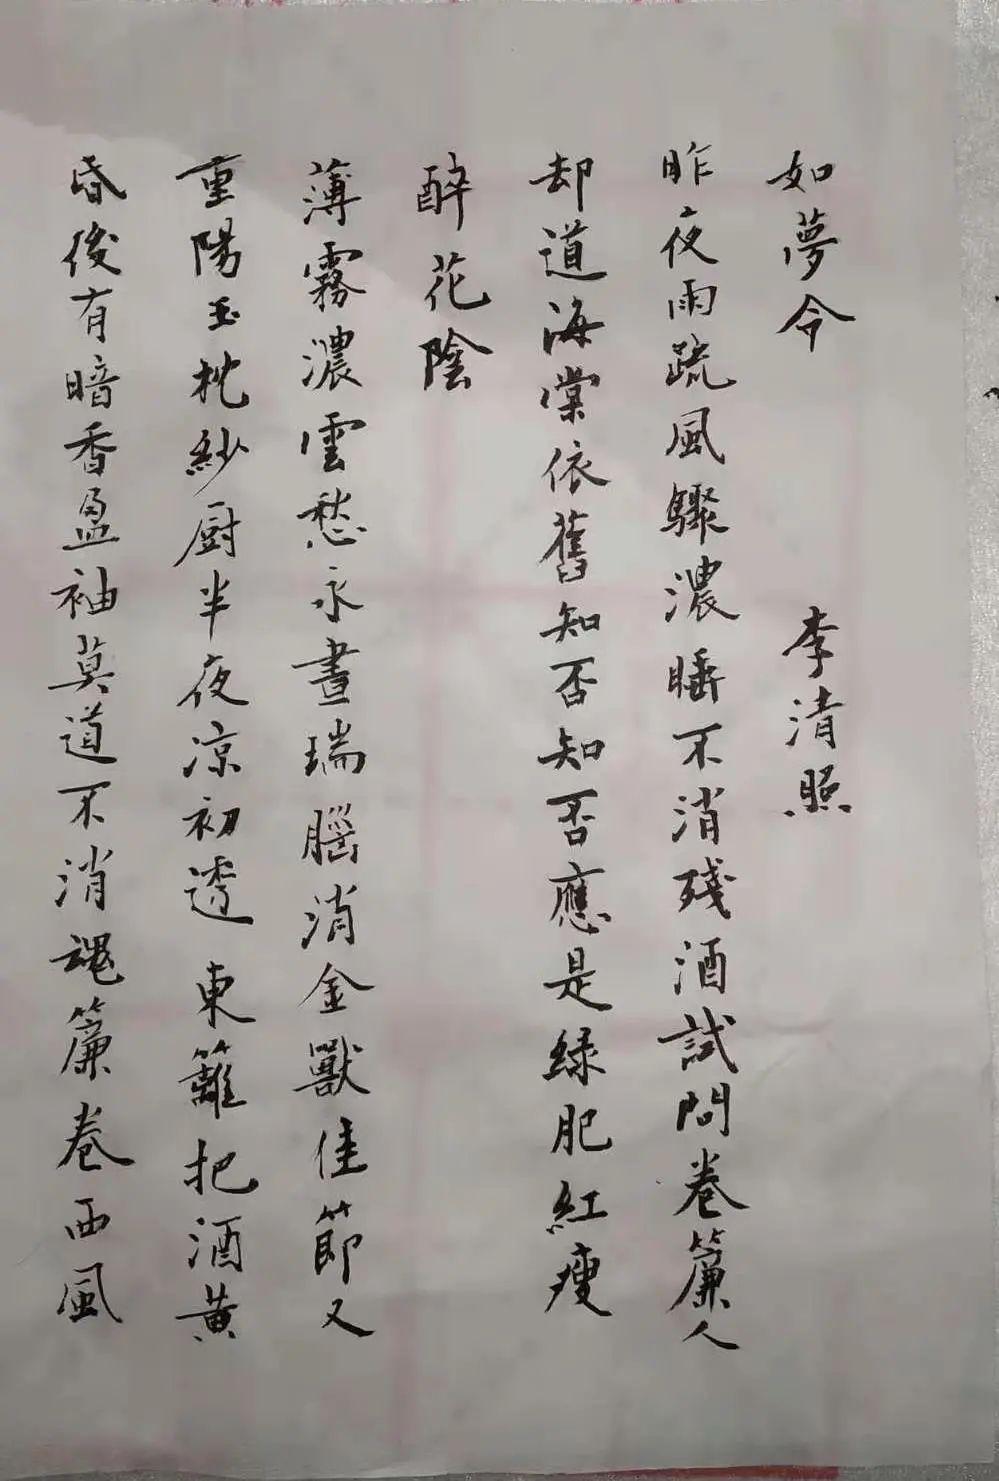 如夢令 李清照
昨夜雨疏風驟濃睡不消殘酒試問卷簾人
却道海棠依舊知否知否應是緑肥紅瘦
醉花陰
薄霧濃雲愁永晝瑞腦消金獸佳節又
重陽玉枕紗厨半夜凉初透東籬把酒黄
昏後有暗香盈袖莫道不消魂簾卷西風